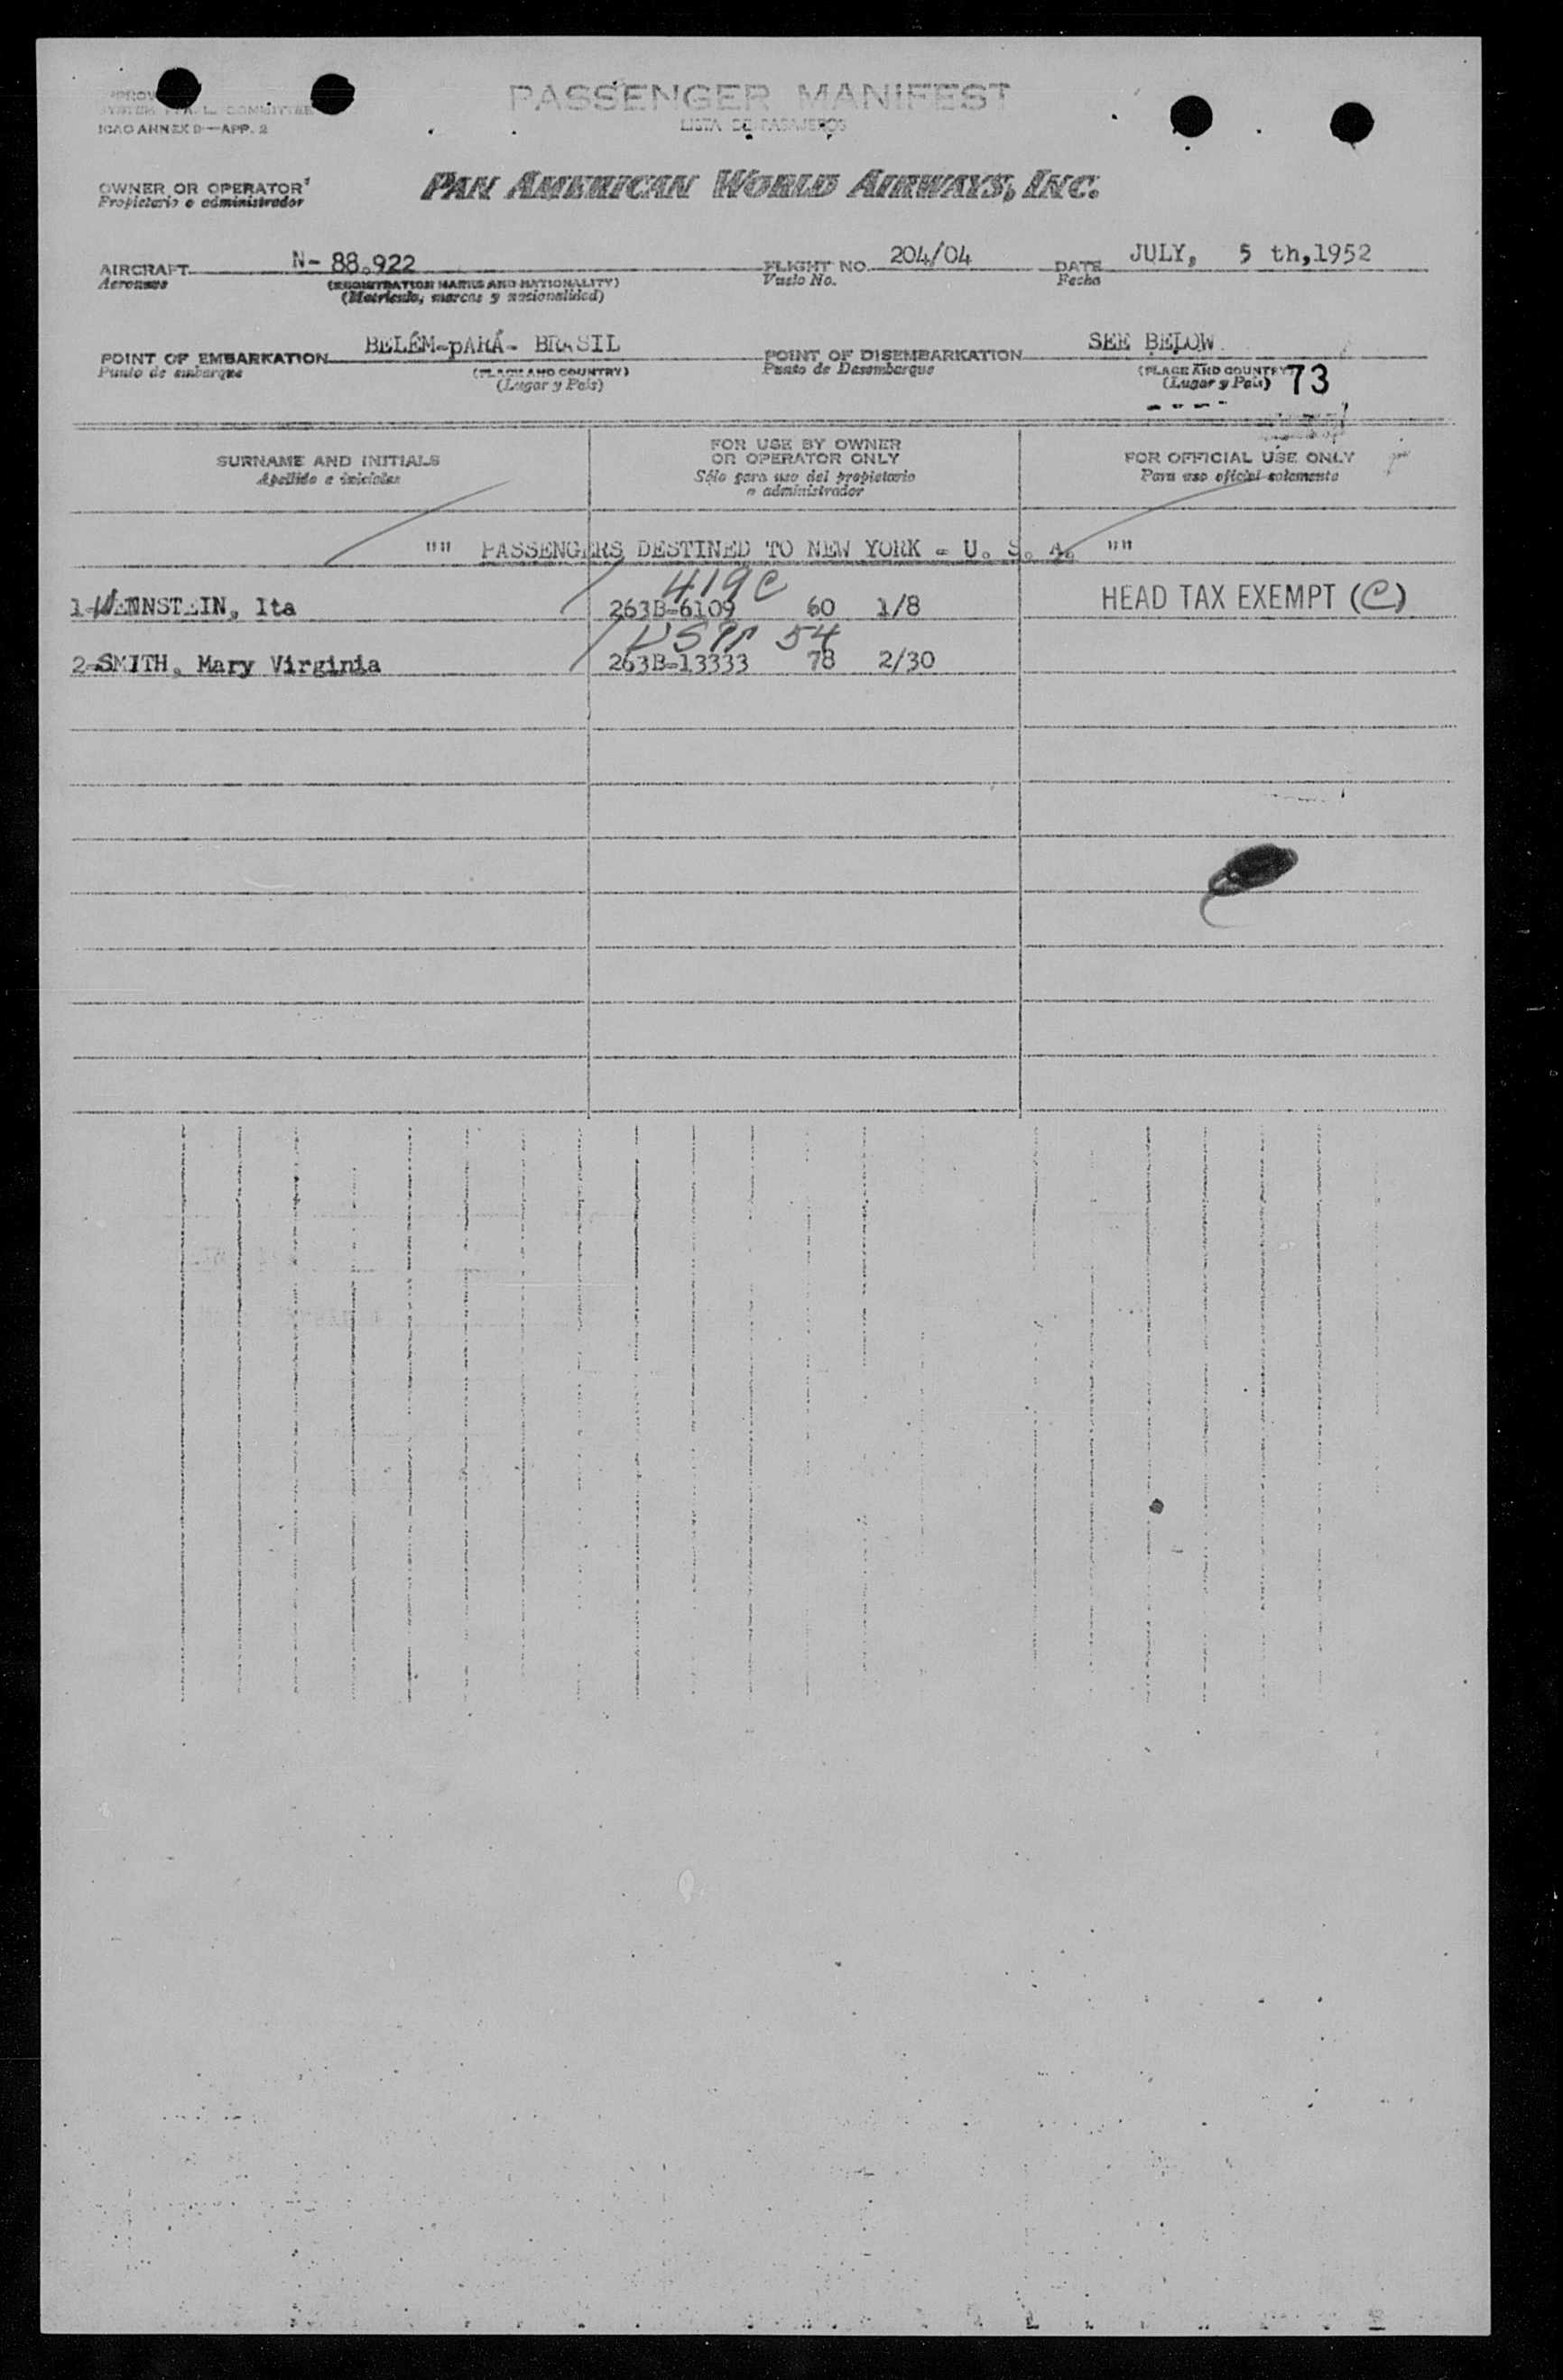 PASSENGER MANIFEST
LISTA DE PASAJEROS
ICAO ANNEX 9—APP. 2
OWNER OR OPERATOR
Propietario o administrador
PAN AMERICAN WORLD AIRWAYS, INC.
AIRCRAFT N- 88.922 FLIGHT NO. 204/04 DATE JULY, 5 th,1952
Aeronave (REGISTRATION MARKS AND NATIONALITY) Vuelo No. Fecha
(Matricula, marcas y nacionalidad)
POINT OF EMBARKATION BELÉM-pARÁ- BRASIL POINT OF DISEMBARKATION SEE BELOW
Punto de embarque (PLACE AND COUNTRY) Punto de Desembarque (PLACE AND COUNTRY)
(Lugar y País) (Lugar y País) 73
SURNAME AND INITIALS FOR USE BY OWNER OR OPERATOR ONLY FOR OFFICIAL USE ONLY
Apellido e iniciales Sólo para uso del propietario o administrador Para uso oficial solamente
"" PASSENGERS DESTINED TO NEW YORK - U. S. A. ""
419C
1- ENNSTEIN, Ita 263B-6109 60 1/8 HEAD TAX EXEMPT (C)
USPP 54
2-SMITH, Mary Virginia 263B-13333 78 2/30